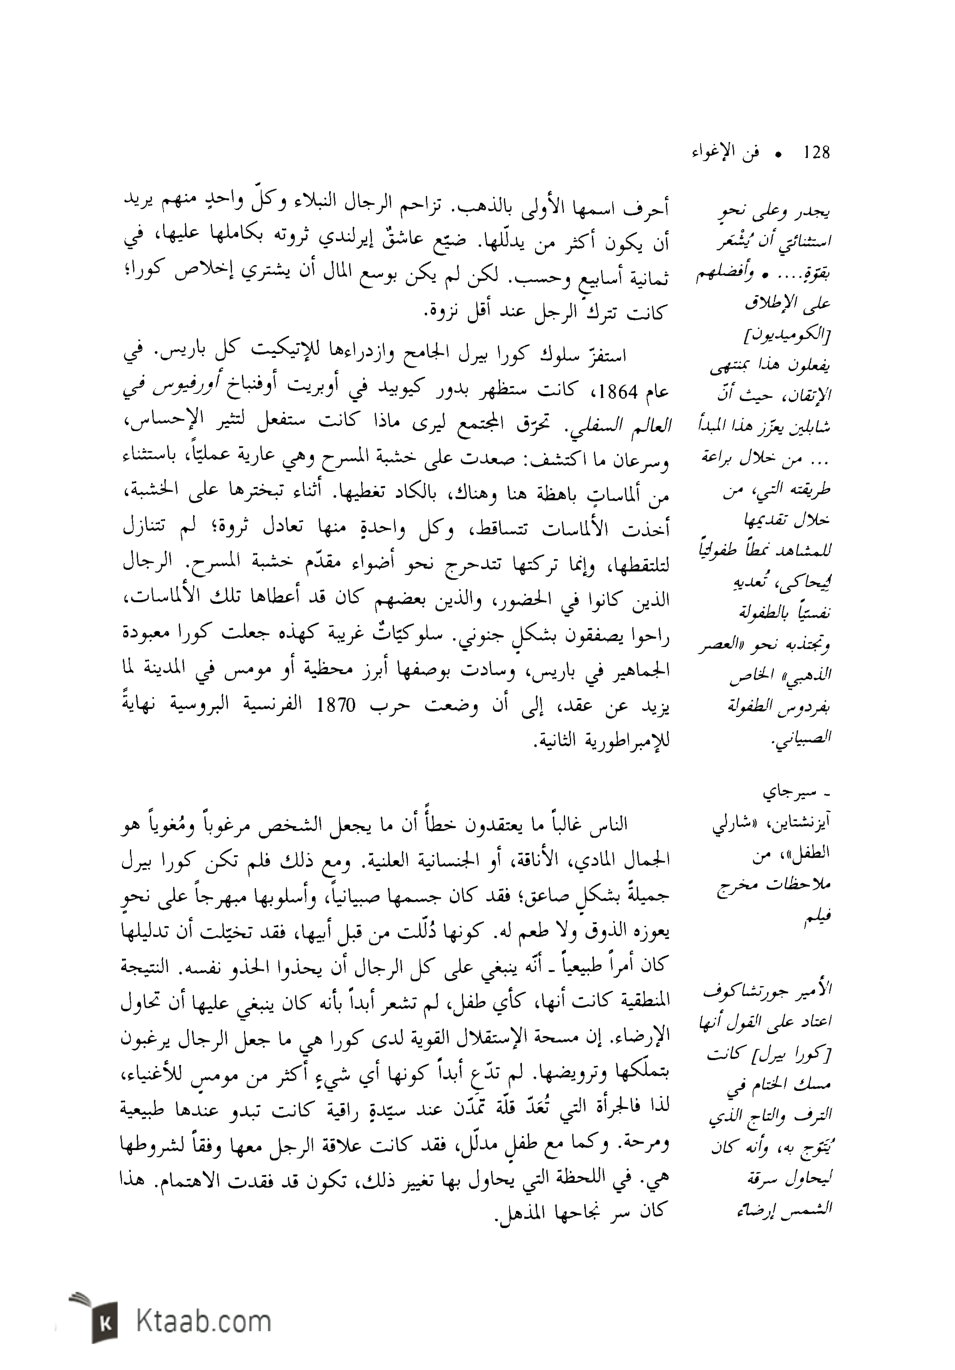 128 • فن الإغواء
أحرف اسمها الأولى بالذهب. تزاحم الرجال النبلاء وكلّ واحدٍ منهم يريد
أن يكون أكثر من يدلّلها. ضيّع عاشقٌ إيرلندي ثروته بكاملها عليها، في
ثمانية أسابيع وحسب. لكن لم يكن بوسع المال أن يشتري إخلاص كورا؛
كانت تترك الرجل عند أقل نزوة.
استفزّ سلوك كورا بيرل الجامح وازدراءها للإتيكيت كل باريس. في
عام 1864، كانت ستظهر بدور كيوبيد في أوبريت أوفنباخ أورفيوس في
العالم السفلي. تحرّق المجتمع ليرى ماذا كانت ستفعل لتثير الإحساس،
وسرعان ما اكتشف: صعدت على خشبة المسرح وهي عارية عمليّاً، باستثناء
من ألماساتٍ باهظة هنا وهناك، بالكاد تغطيها. أثناء تبخترها على الخشبة،
أخذت الألماسات تتساقط، وكل واحدةٍ منها تعادل ثروة؛ لم تتنازل
لتلتقطها، وإنما تركتها تتدحرج نحو أضواء مقدّم خشبة المسرح. الرجال
الذين كانوا في الحضور، والذين بعضهم كان قد أعطاها تلك الألماسات،
راحوا يصفقون بشكلٍ جنوني. سلوكيّاتٌ غريبة كهذه جعلت كورا معبودة
الجماهير في باريس، وسادت بوصفها أبرز محظية أو مومس في المدينة لما
يزيد عن عقد، إلى أن وضعت حرب 1870 الفرنسية البروسية نهايةً
للإمبراطورية الثانية.
الناس غالباً ما يعتقدون خطأً أن ما يجعل الشخص مرغوباً ومُغوياً هو
الجمال المادي، الأناقة، أو الجنسانية العلنية. ومع ذلك فلم تكن كورا بيرل
جميلةً بشكلٍ صاعق؛ فقد كان جسمها صبيانياً، وأسلوبها مبهرجاً على نحوٍ
يعوزه الذوق ولا طعم له. كونها دُلّلت من قبل أبيها، فقد تخيّلت أن تدليلها
كان أمراً طبيعياً ـ أنّه ينبغي على كل الرجال أن يحذوا الحذو نفسه. النتيجة
المنطقية كانت أنها، كأي طفل، لم تشعر أبداً بأنه كان ينبغي عليها أن تحاول
الإرضاء. إن مسحة الإستقلال القوية لدى كورا هي ما جعل الرجال يرغبون
بتملّكها وترويضها. لم تدّعِ أبداً كونها أي شيءٍ أكثر من مومسٍ للأغنياء،
لذا فالجرأة التي تُعَدّ قلّة تمدّن عند سيّدةٍ راقية كانت تبدو عندها طبيعية
ومرحة. وكما مع طفلٍ مدلّل، فقد كانت علاقة الرجل معها وفقاً لشروطها
هي. في اللحظة التي يحاول بها تغيير ذلك، تكون قد فقدت الاهتمام. هذا
كان سر نجاحها المذهل.
يجدر وعلى نحوٍ
استثنائي أن يُشْعَر
بقوّةٍ.... • وأفضلهم
على الإطلاق
[الكوميديون]
يفعلون هذا بمنتهى
الإتقان، حيث أنّ
شابلين يعزّز هذا المبدأ
... من خلال براعة
طريقته التي، من
خلال تقديمها
للمشاهد نمطاً طفوليّاً
لِيُحاكى، تُعديهِ
نفسيّاً بالطفولة
وتجتذبه نحو «العصر
الذهبي» الخاص
بفردوس الطفولة
الصبياني.
ـ سيرجاي
آيزنشتاين، «شارلي
الطفل»، من
ملاحظات مخرج
فيلم
الأمير جورتشاكوف
اعتاد على القول أنها
[كورا بيرل] كانت
مسك الختام في
الترف والتاج الذي
يُتَوّج به، وأنه كان
ليحاول سرقة
الشمس إرضاءً
Ktaab.com